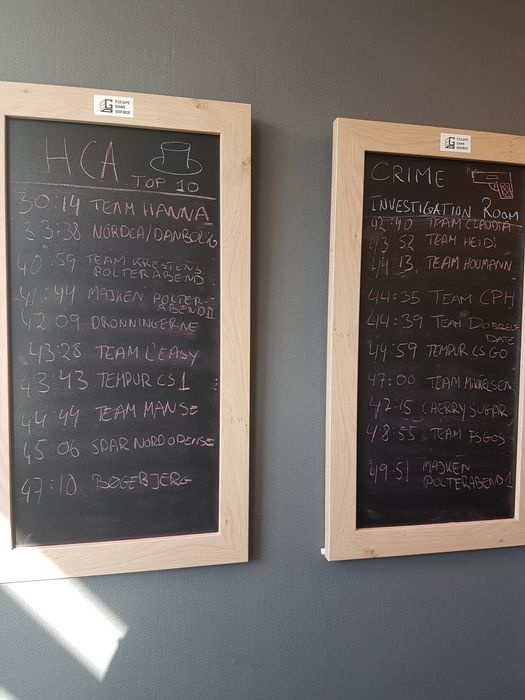 ESCAPE
GAME
ODENSE
HCA
TOP 10
30:14 TEAM HANNA
33:38 NORDEA/DANBOLIG
40:59 TEAM KRESTENS
POLTERABEND
41:44 MAJKEN POLTER-
ABEND II
42 09 DRONNINGERNE
43:28 TEAM L'EASY
43:43 TEMPUR CS 1
44:44 TEAM MANSE
45:06 SPAR NORD ODENSE
47:10 BØGEBJERG
ESCAPE
GAME
ODENSE
CRIME
INVESTIGATION ROOM
42:40 TEAM CLAUDIA
43:52 TEAM HEIDI
44:13 TEAM HOUMANN
44:35 TEAM CPH
44:39 TEAM DOBBELT
DATE
44:59 TEMPUR CS GO
47:00 TEAM MIKKELSEN
47:15 CHERRY SUGAR
48:55 TEAM FSGOS
49:51 MAJKEN
POLTERABEND 1